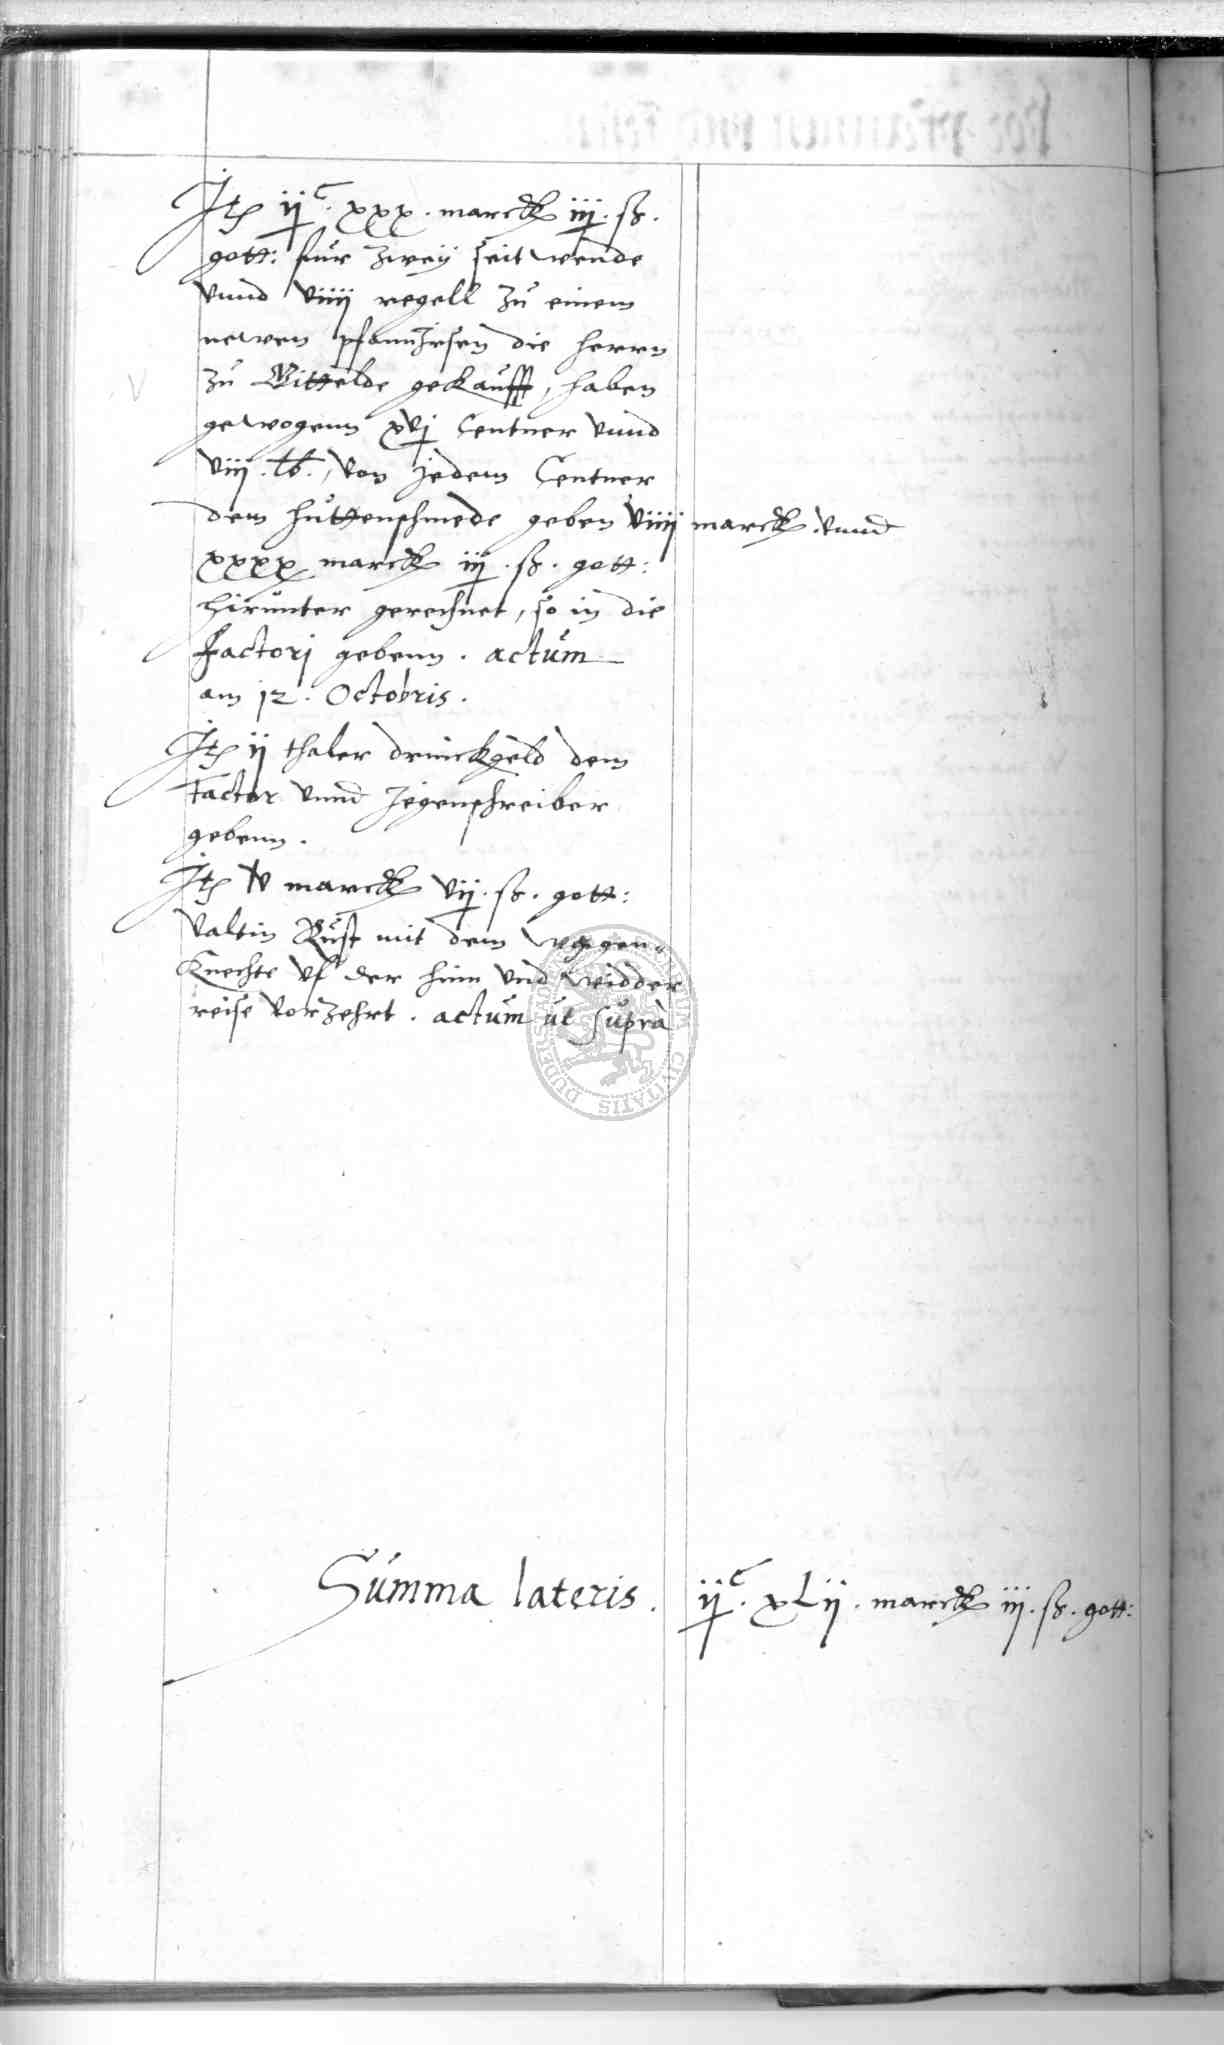 Jt(em) ijᶜ. xxx. marck iij. ß.
gott: fur zweÿ seit wende
vnnd viiij regell zu einem
newen pfannJrsen die herrn
zu Gittelde gekaufft, haben
gewogenn xvj Centner vnnd
viij. lb., von Jedem Centner
dem huttenschmede geben viiij marck. vnnd
xxxx marck iij. ß. gott:
hirunter gerechnet, so in die
Factorj gebenn. actum
am 12. Octobris.
Jt(em) ij thaler drinckgeld dem
Factor vnnd Jegenschreiber
gebenn.
Jt(em) v marck vij. ß. gott:
Valtin Rust mit dem wagen-
Knechte vf der hinn vnd widder
reise vorzehrt. actum ut supra
Summa lateris. ijᶜ. xLij. marck iij. ß. gott:
DUDERS CIVITATIS